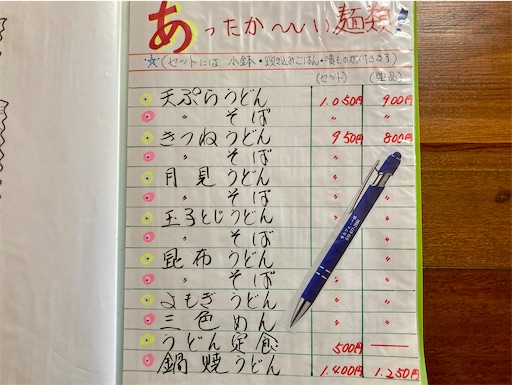 あったか〜い麺類!
☆(セットには 小鉢・炊き込みごはん・漬もの が付きます)
(セット) (単品)
天ぷらうどん 1.050円 900円
〃 そば 〃 〃
きつねうどん 950円 800円
〃 そば 〃 〃
月見うどん 〃 〃
〃 そば 〃 〃
玉子とじうどん 〃 〃
〃 そば 〃 〃
昆布うどん 〃 〃
〃 そば 〃 〃
よもぎうどん 〃 〃
三色めん 〃 〃
うどん定食 500円 ―
鍋焼うどん 1.400円 1.250円